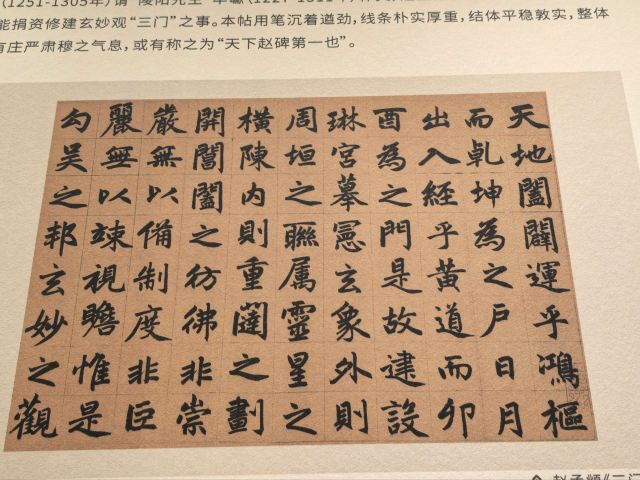 (1251-1305年)请“陵阳先生”牟巘
能捐资修建玄妙观“三门”之事。本帖用笔沉着遒劲，线条朴实厚重，结体平稳敦实，整体
有庄严肃穆之气息，或有称之为“天下赵碑第一也”。
天地闔闢運乎鴻樞
而乹坤為之户日月
出入經乎黄道而卯
酉為之門是故建設
琳宮摹憲玄象外則
周垣之聯属靈星之
横陳内則重闥之劃
開閶闔之彷彿非崇
嚴無以備制度非巨
麗無以竦視瞻惟是
勾吴之邦玄妙之觀
赵孟頫《三门